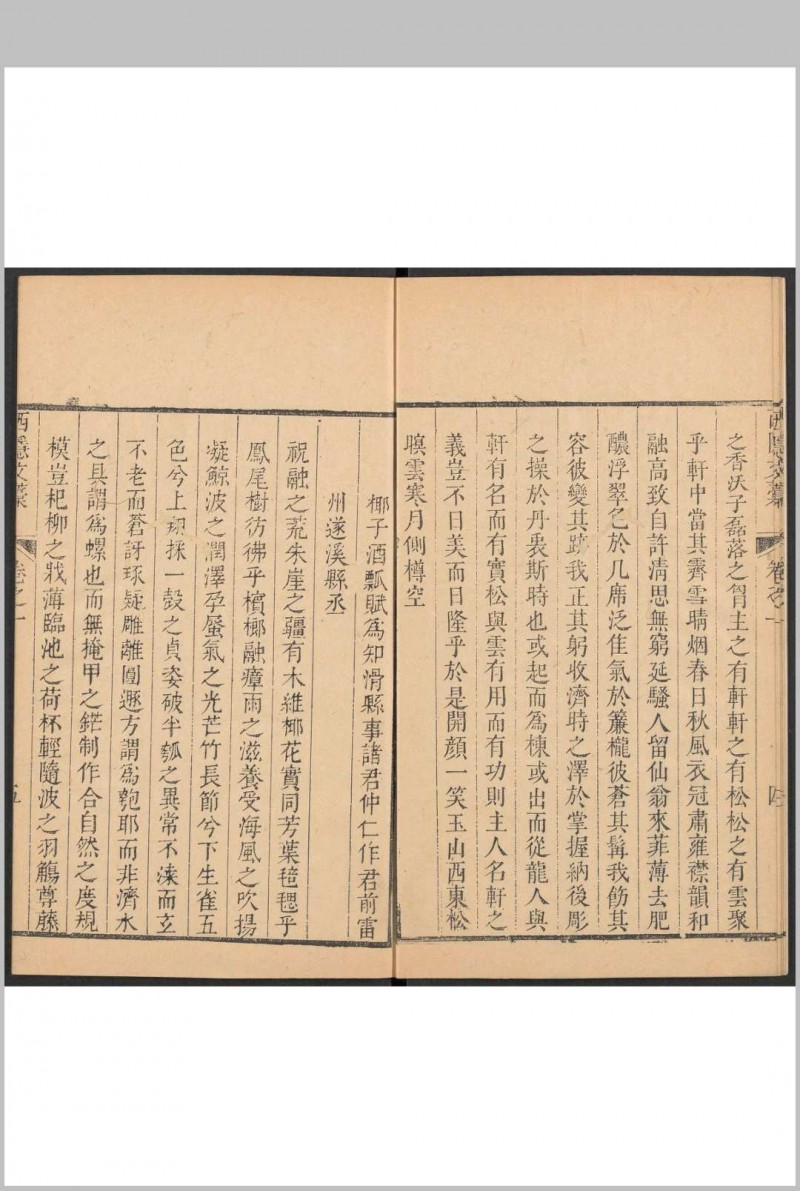 西隱文藁
卷之一
四
之香沃子磊落之胷主之有軒軒之有松松之有雲聚
乎軒中當其霽雪晴烟春日秋風衣冠肅雍襟韻和
融高致自許淸思無窮延騷人留仙翁來菲薄去肥
醲浮翠色於几席泛佳氣於簾櫳彼蒼其髯我飭其
容彼變其跡我正其躬收濟時之澤於掌握納後彫
之操於丹裏斯時也或起而爲棟或出而從龍人與
軒有名而有實松與雲有用而有功則主人名軒之
義豈不日美而日隆乎於是開顏一笑玉山西東松
暝雲寒月側樽空
椰子酒瓢賦爲知滑縣事諸君仲仁作君前雷
州遂溪縣丞
祝融之荒朱崖之疆有木維椰花實同芳葉毿毸乎
鳳尾樹彷彿乎檳榔融瘴雨之滋養受海風之吹揚
凝鯨波之潤澤孕蜃氣之光芒竹長節兮下生雀五
色兮上翔採一殼之貞姿破半瓠之異常不涷而玄
不老而蒼訝琢疑雕離圓遯方謂爲匏耶而非濟水
之具謂爲螺也而無掩甲之鋩制作合自然之度規
模豈杞柳之戕薄臨池之荷杯輕隨波之羽觴尊藤
西隱文藁
卷之一
五